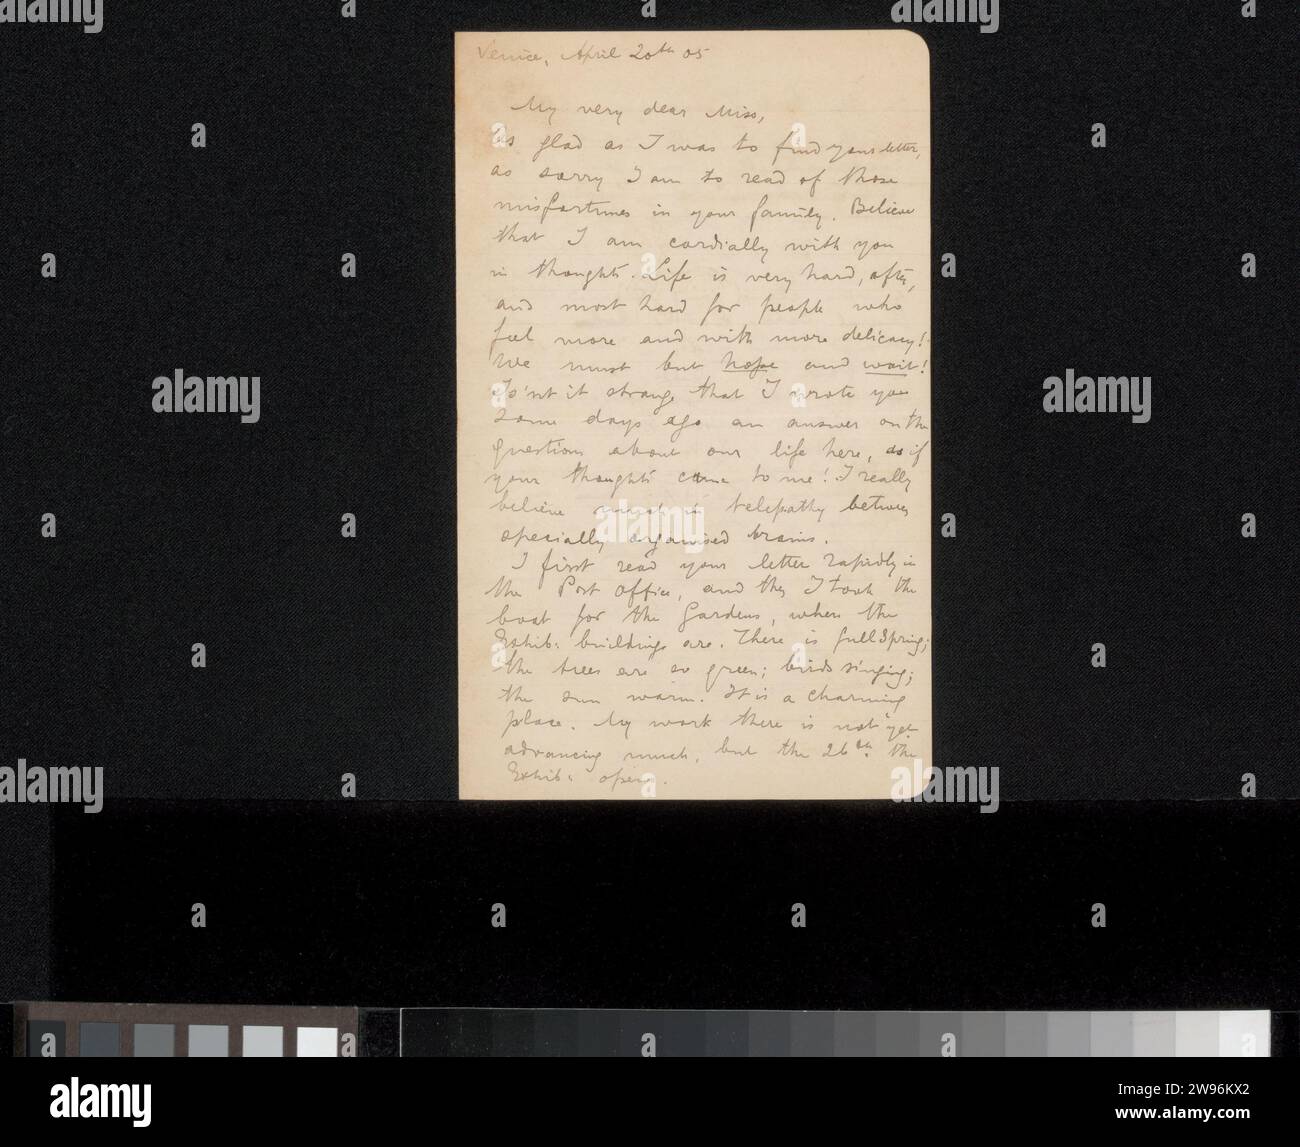 Venice, April 20th 05
My very dear Miss,
as glad as I was to find your letter,
as sorry I am to read of those
misfortunes in your family. Believe
that I am cordially with you
in thoughts. Life is very hard, often,
and most hard for people who
feel more and with more delicacy!
We must but hope and wait!
Is'nt it strange that I wrote you
some days ago an answer on the
questions about our life here, as if
your thoughts came to me! I really
believe much in telepathy between
specially organised brains.
I first read your letter rapidly in
the Post Office, and then I took the
boat for the Gardens, where the
Exhib: buildings are. There is full Spring;
the trees are so green; birds singing;
the sun warm. It is a charming
place. My work there is not yet
advancing much, but the 26th the
Exhib: opens.
alamy
Image ID: 2W96KX2
www.alamy.com